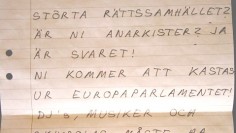 STÖRTA RÄTTSSAMHÄLLET?
ÄR NI ANARKISTER? JA
ÄR SVARET!
NI KOMMER ATT KASTAS
UR EUROPAPARLAMENTET!
DJ'S, MUSIKER OCH